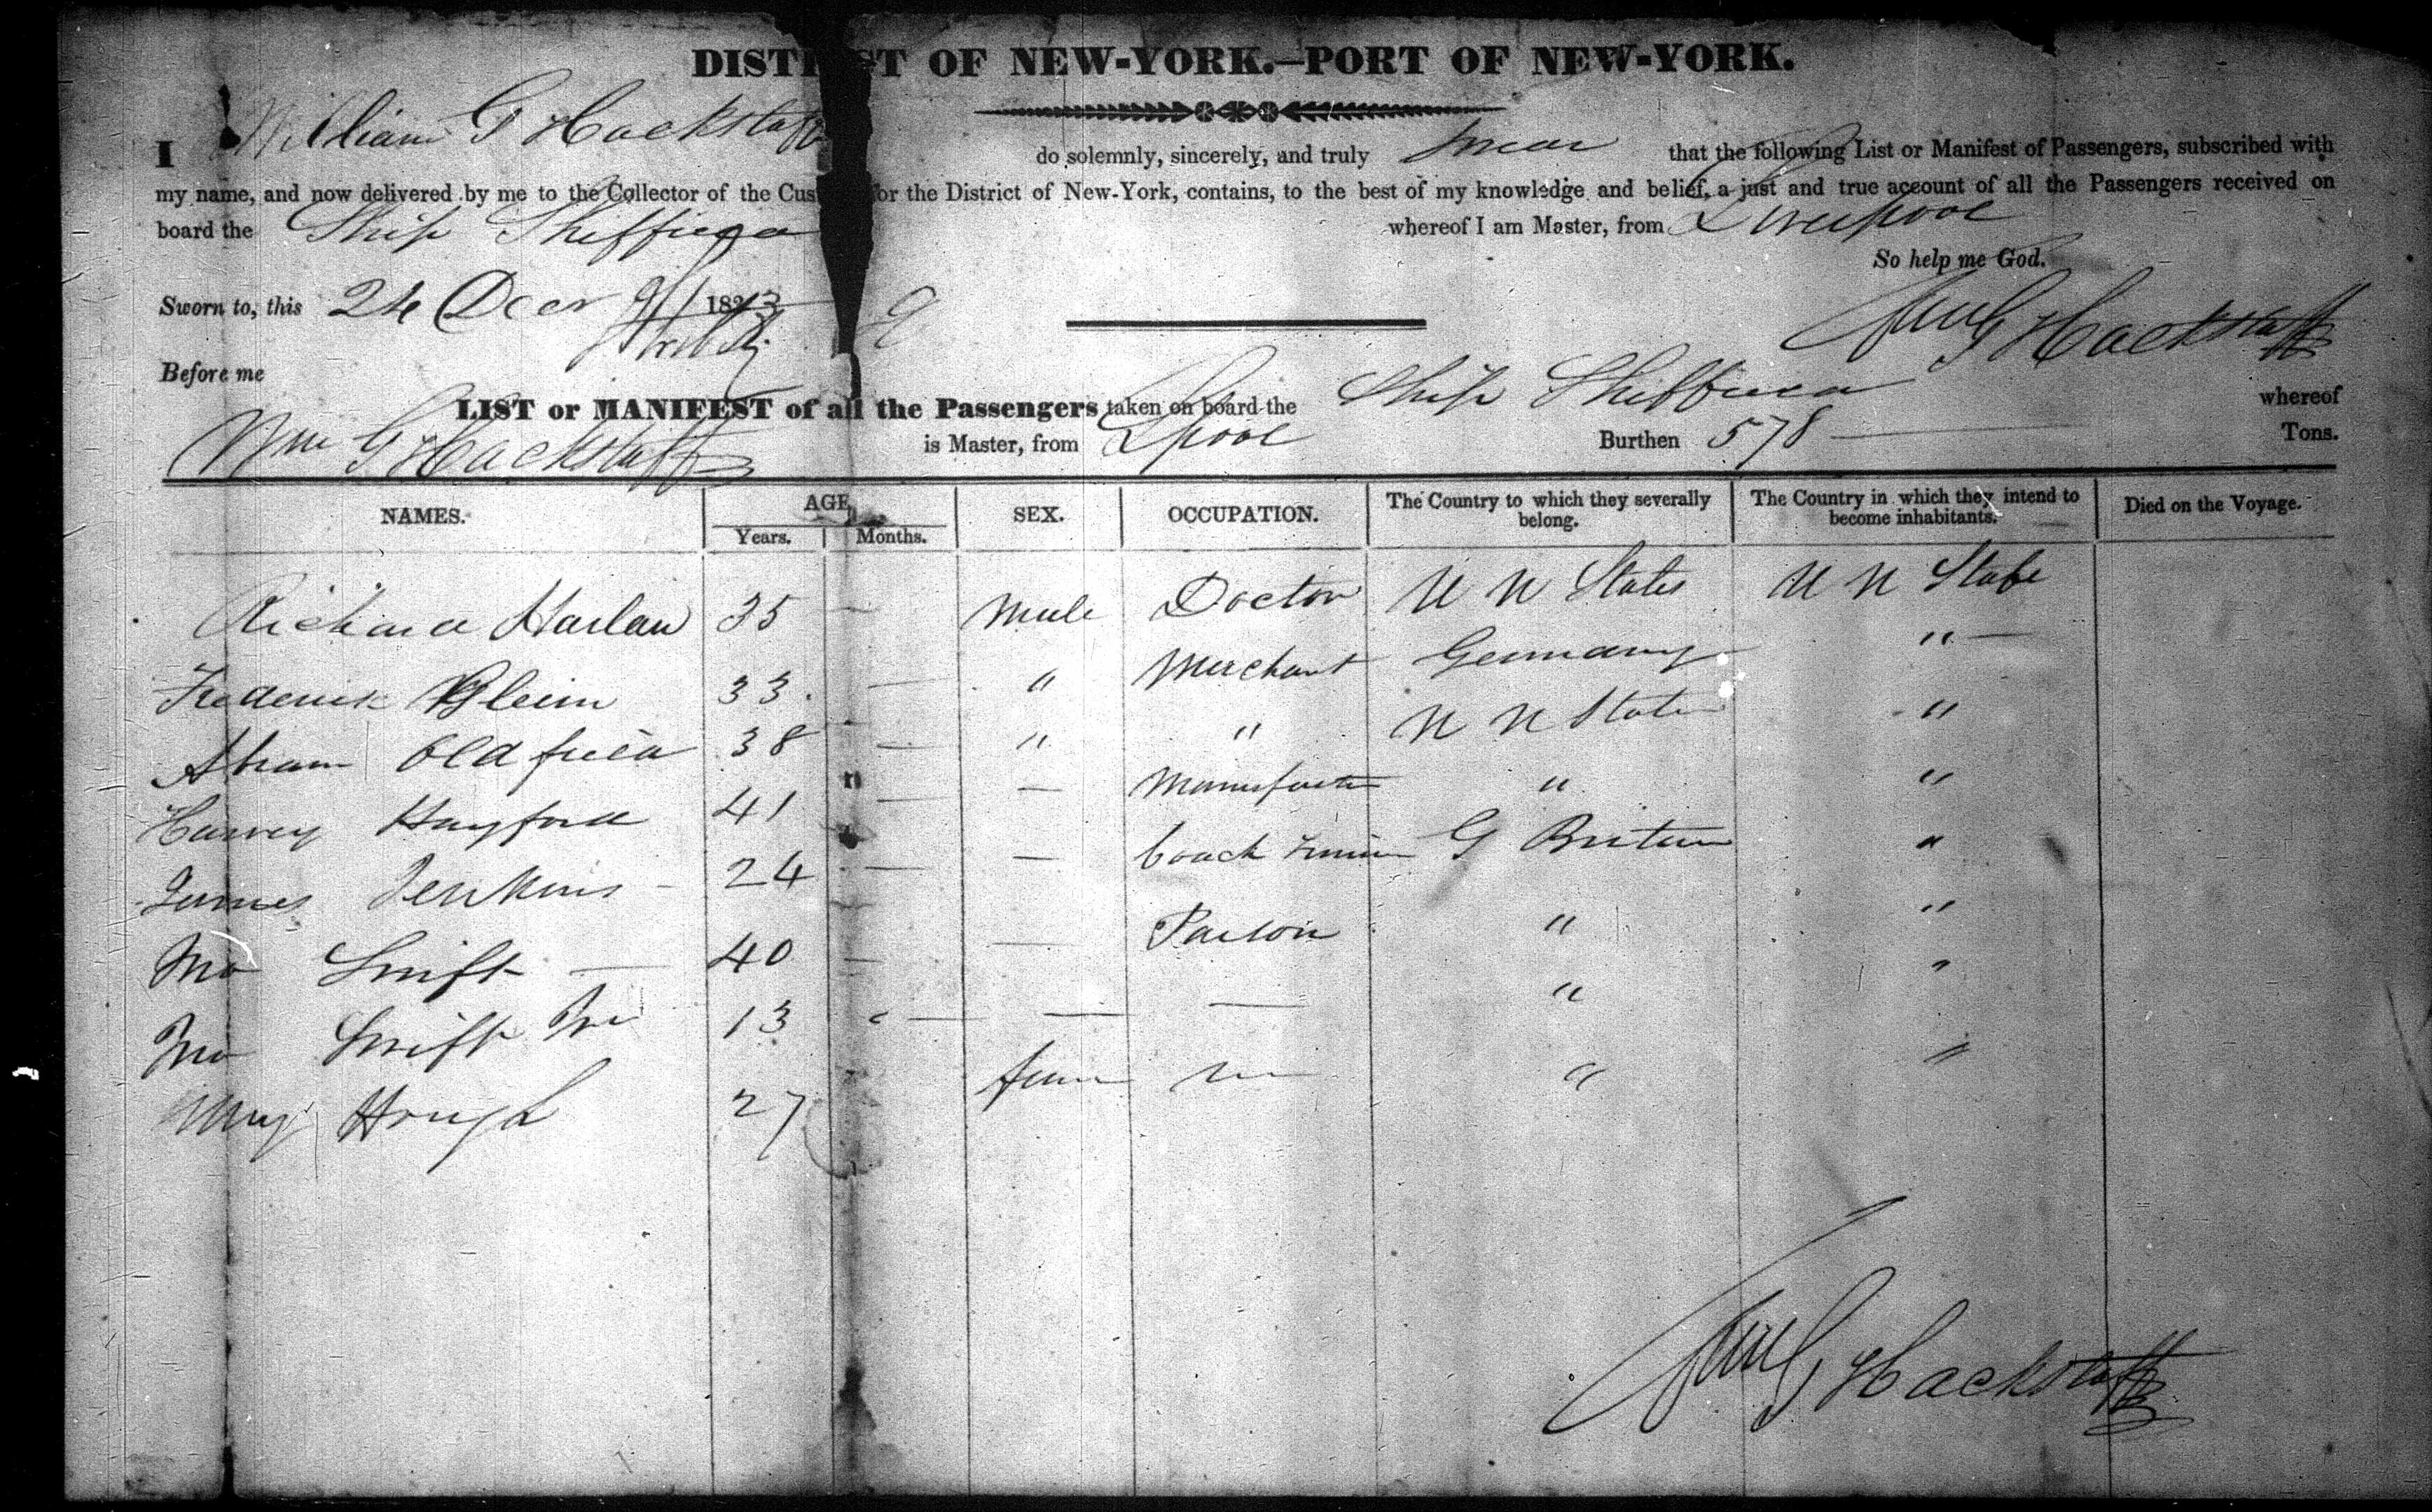 DISTRICT OF NEW-YORK.—PORT OF NEW-YORK.
I William G Hackstaff do solemnly, sincerely, and truly swear that the following List or Manifest of Passengers, subscribed with
my name, and now delivered by me to the Collector of the Customs for the District of New-York, contains, to the best of my knowledge and belief, a just and true account of all the Passengers received on
board the Ship Sheffield whereof I am Master, from Liverpool
So help me God.
Sworn to, this 24 Decr 183
Wm G Hackstaff
Before me
LIST or MANIFEST of all the Passengers taken on board the Ship Sheffield whereof
Wm G Hackstaff is Master, from Lpool Burthen 578 Tons.
NAMES. AGE. SEX. OCCUPATION. The Country to which they severally belong. The Country in which they intend to become inhabitants. Died on the Voyage.
Years. Months.
Richard Harlan 35 — Male Doctor U N States U N State
Frederick Gleim 33 — " Merchant Germany "
Abram Oldfield 38 — " " U N State "
Harvey Hayford 41 — — Manufactr " "
James Jenkins 24 — — Coach Trimmer G Britain "
Jno Swift — 40 — — Parson " "
Jno Swift Jnr 13 " — — — " "
Mary Hough 27 fem " "
Wm G Hackstaff